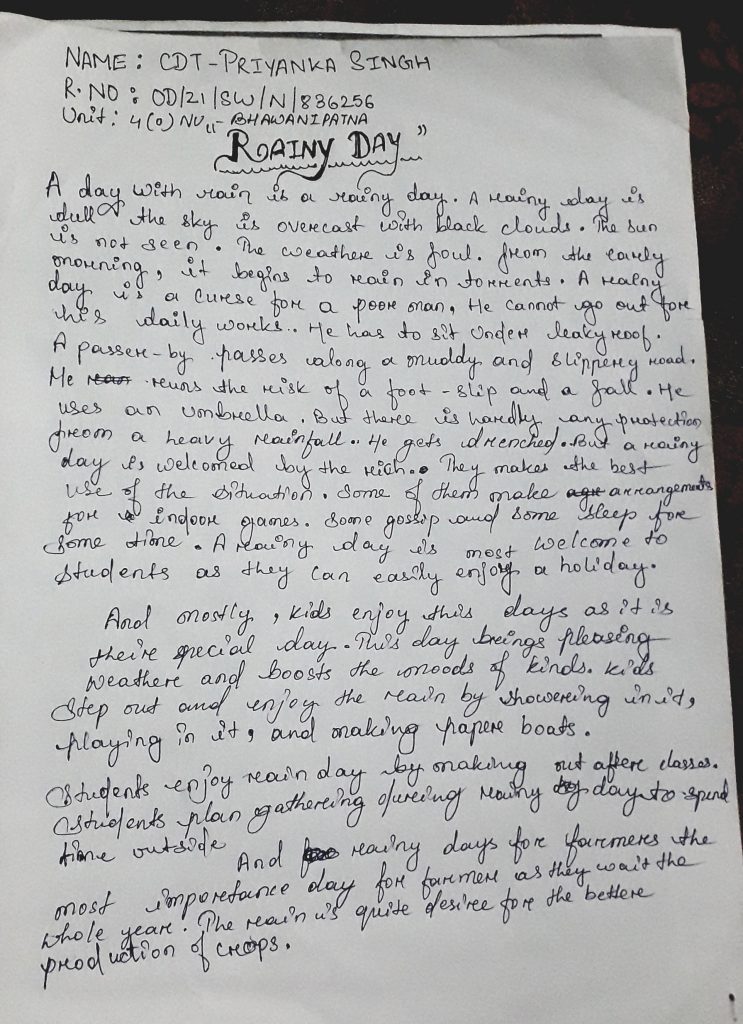 NAME : CDT-PRIYANKA SINGH
R.NO : OD/21/SW/N/836256
Unit : 4(O) NU,, - BHAWANIPATNA
RAINY DAY"
A day with rain is a rainy day. A rainy day is
dull & the sky is overcast with black clouds. The sun
is not seen. The weather is foul. from the early
morning, it begins to rain in torrents. A rainy
day is a curse for a poor man, He cannot go out for
his daily works.. He has to sit under leaky roof.
A passer-by passes along a muddy and slippery road.
He runs the risk of a foot-slip and a fall. He
uses an umbrella. But there is hardly any protection
from a heavy rainfall.. He gets drenched. But a rainy
day is welcomed by the rich.. They makes the best
use of the situation. Some of them make arrangements
for indoor games. Some gossip and some sleep for
some time. A rainy day is most welcome to
students as they can easily enjoy a holiday.
And mostly, kids enjoy this days as it is
their special day. This day brings pleasing
weather and boosts the moods of kinds. kids
step out and enjoy the rain by showering in it,
playing in it, and making paper boats.
Students enjoy rain day by making out after classes.
Students plan gathering during rainy days to spend
time outside
And rainy days for farmers the
most importance day for farmer as they wait the
whole year. The rain is quite desire for the better
production of crops.